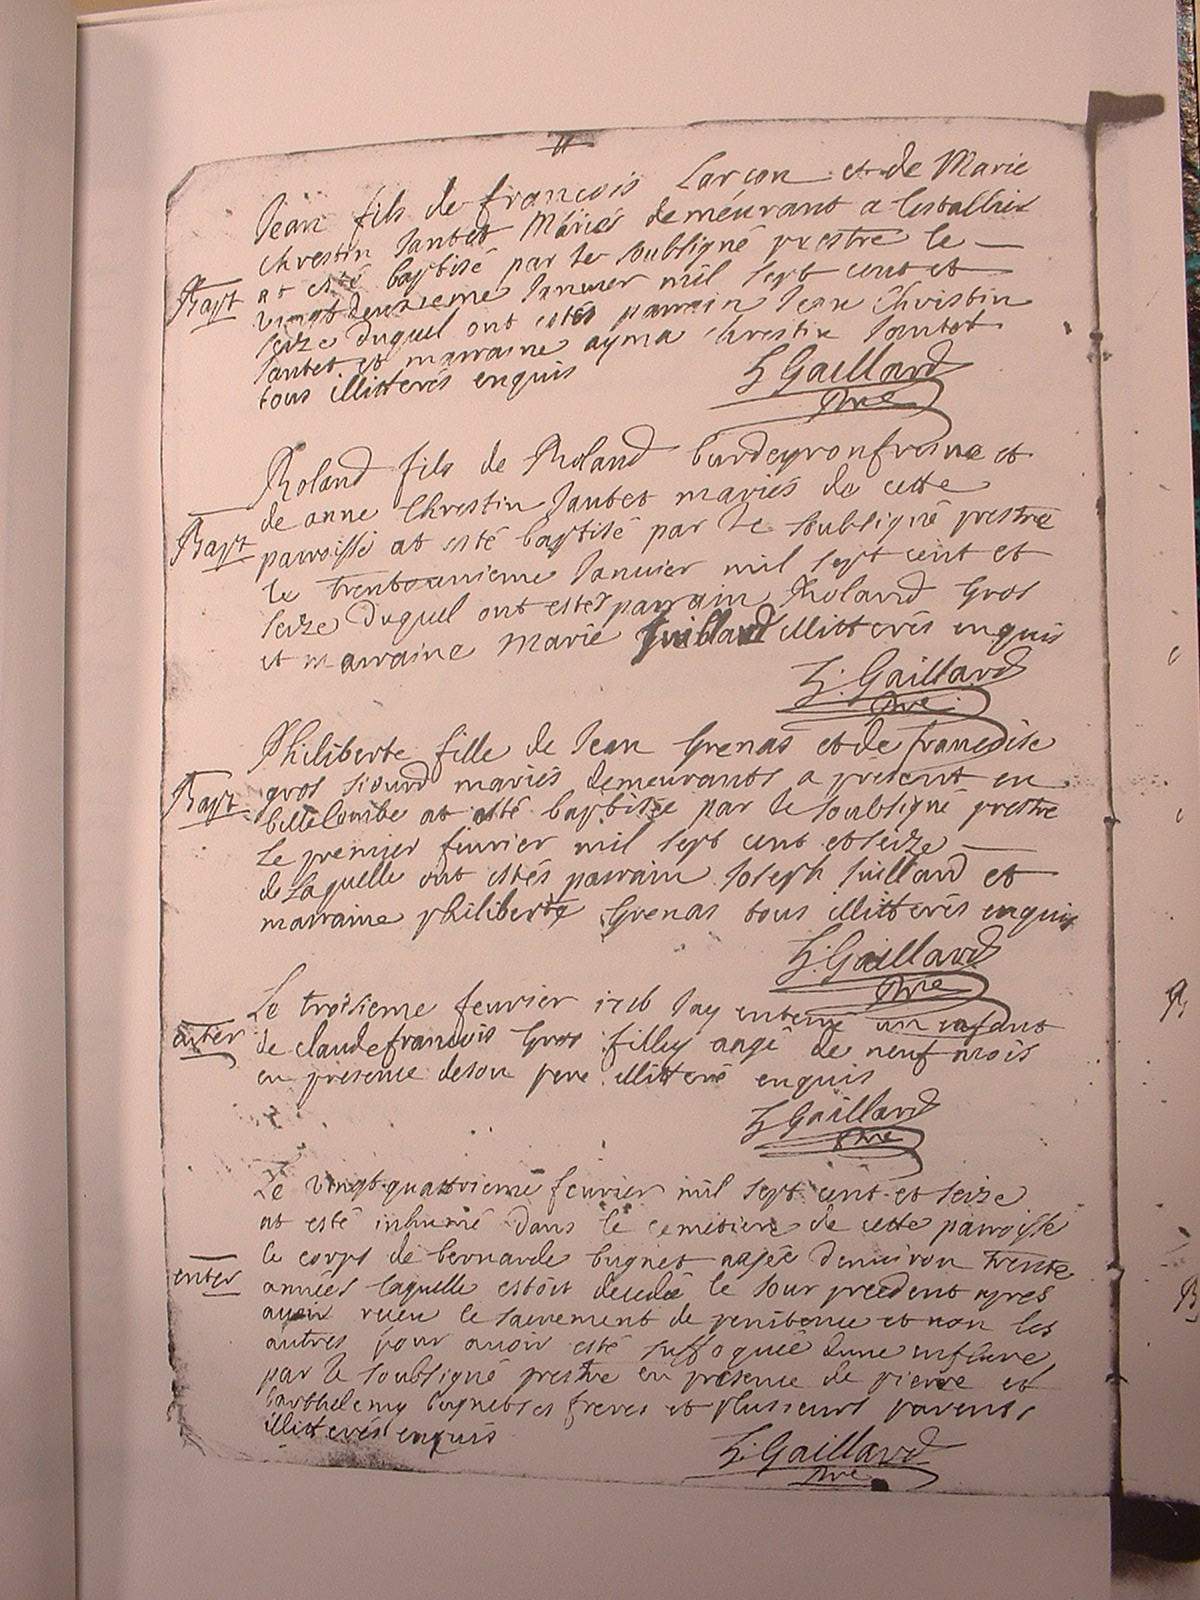 Jean fils de françois Larçon et de Marie
Chrestin Jantet Mariés demeurant a
at esté baptisé par le soubsigné prestre le
Bapt
vingt deuxieme Janvier mil sept cent et
seize duquel ont estés parrain Jean Chrestin
Jantet et marraine ayma Chrestin Jantet
tous illitterés enquis
Gaillard
pre
Roland fils de Roland et
de anne Chrestin Jantet mariés de cette
Bapt
parroisse at esté baptisé par le soubsigné prestre
le trente unieme Janvier mil sept cent et
seize duquel ont estés parrain Roland Gros
et marraine Marie Juilland illitterés enquis
Gaillard
pre
Philiberte fille de Jean Grenas et de françoise
gros mariés demeurants a present en
Bapt
bellecombe at esté baptisée par le soubsigné prestre
le premier fevrier mil sept cent et seize
de laquelle ont estés parrain Joseph Juilland et
marraine philiberte Grenas tous illitterés enquis
Gaillard
pre
Le troisieme fevrier 1716 Jay enterré un enfant
enter
de claude françois Gros filley aagé de neuf mois
en presence de son pere illitteré enquis
Gaillard
pre
Le vingt quattrieme fevrier mil sept cent et seize
at esté inhumé dans le cemetiere de cette parroisse
le corps de bernarde bugnet aagée denviron trente
enter
années laquelle estoit decedée le Jour precedent apres
avoir receu le sacrement de penitence et non les
autres pour avoir esté suffoquée dune enflure
par le soubsigné prestre en presence de pierre et
barthelemy bugnet ses freres et plusieurs parents
illitterés enquis
Gaillard
pre